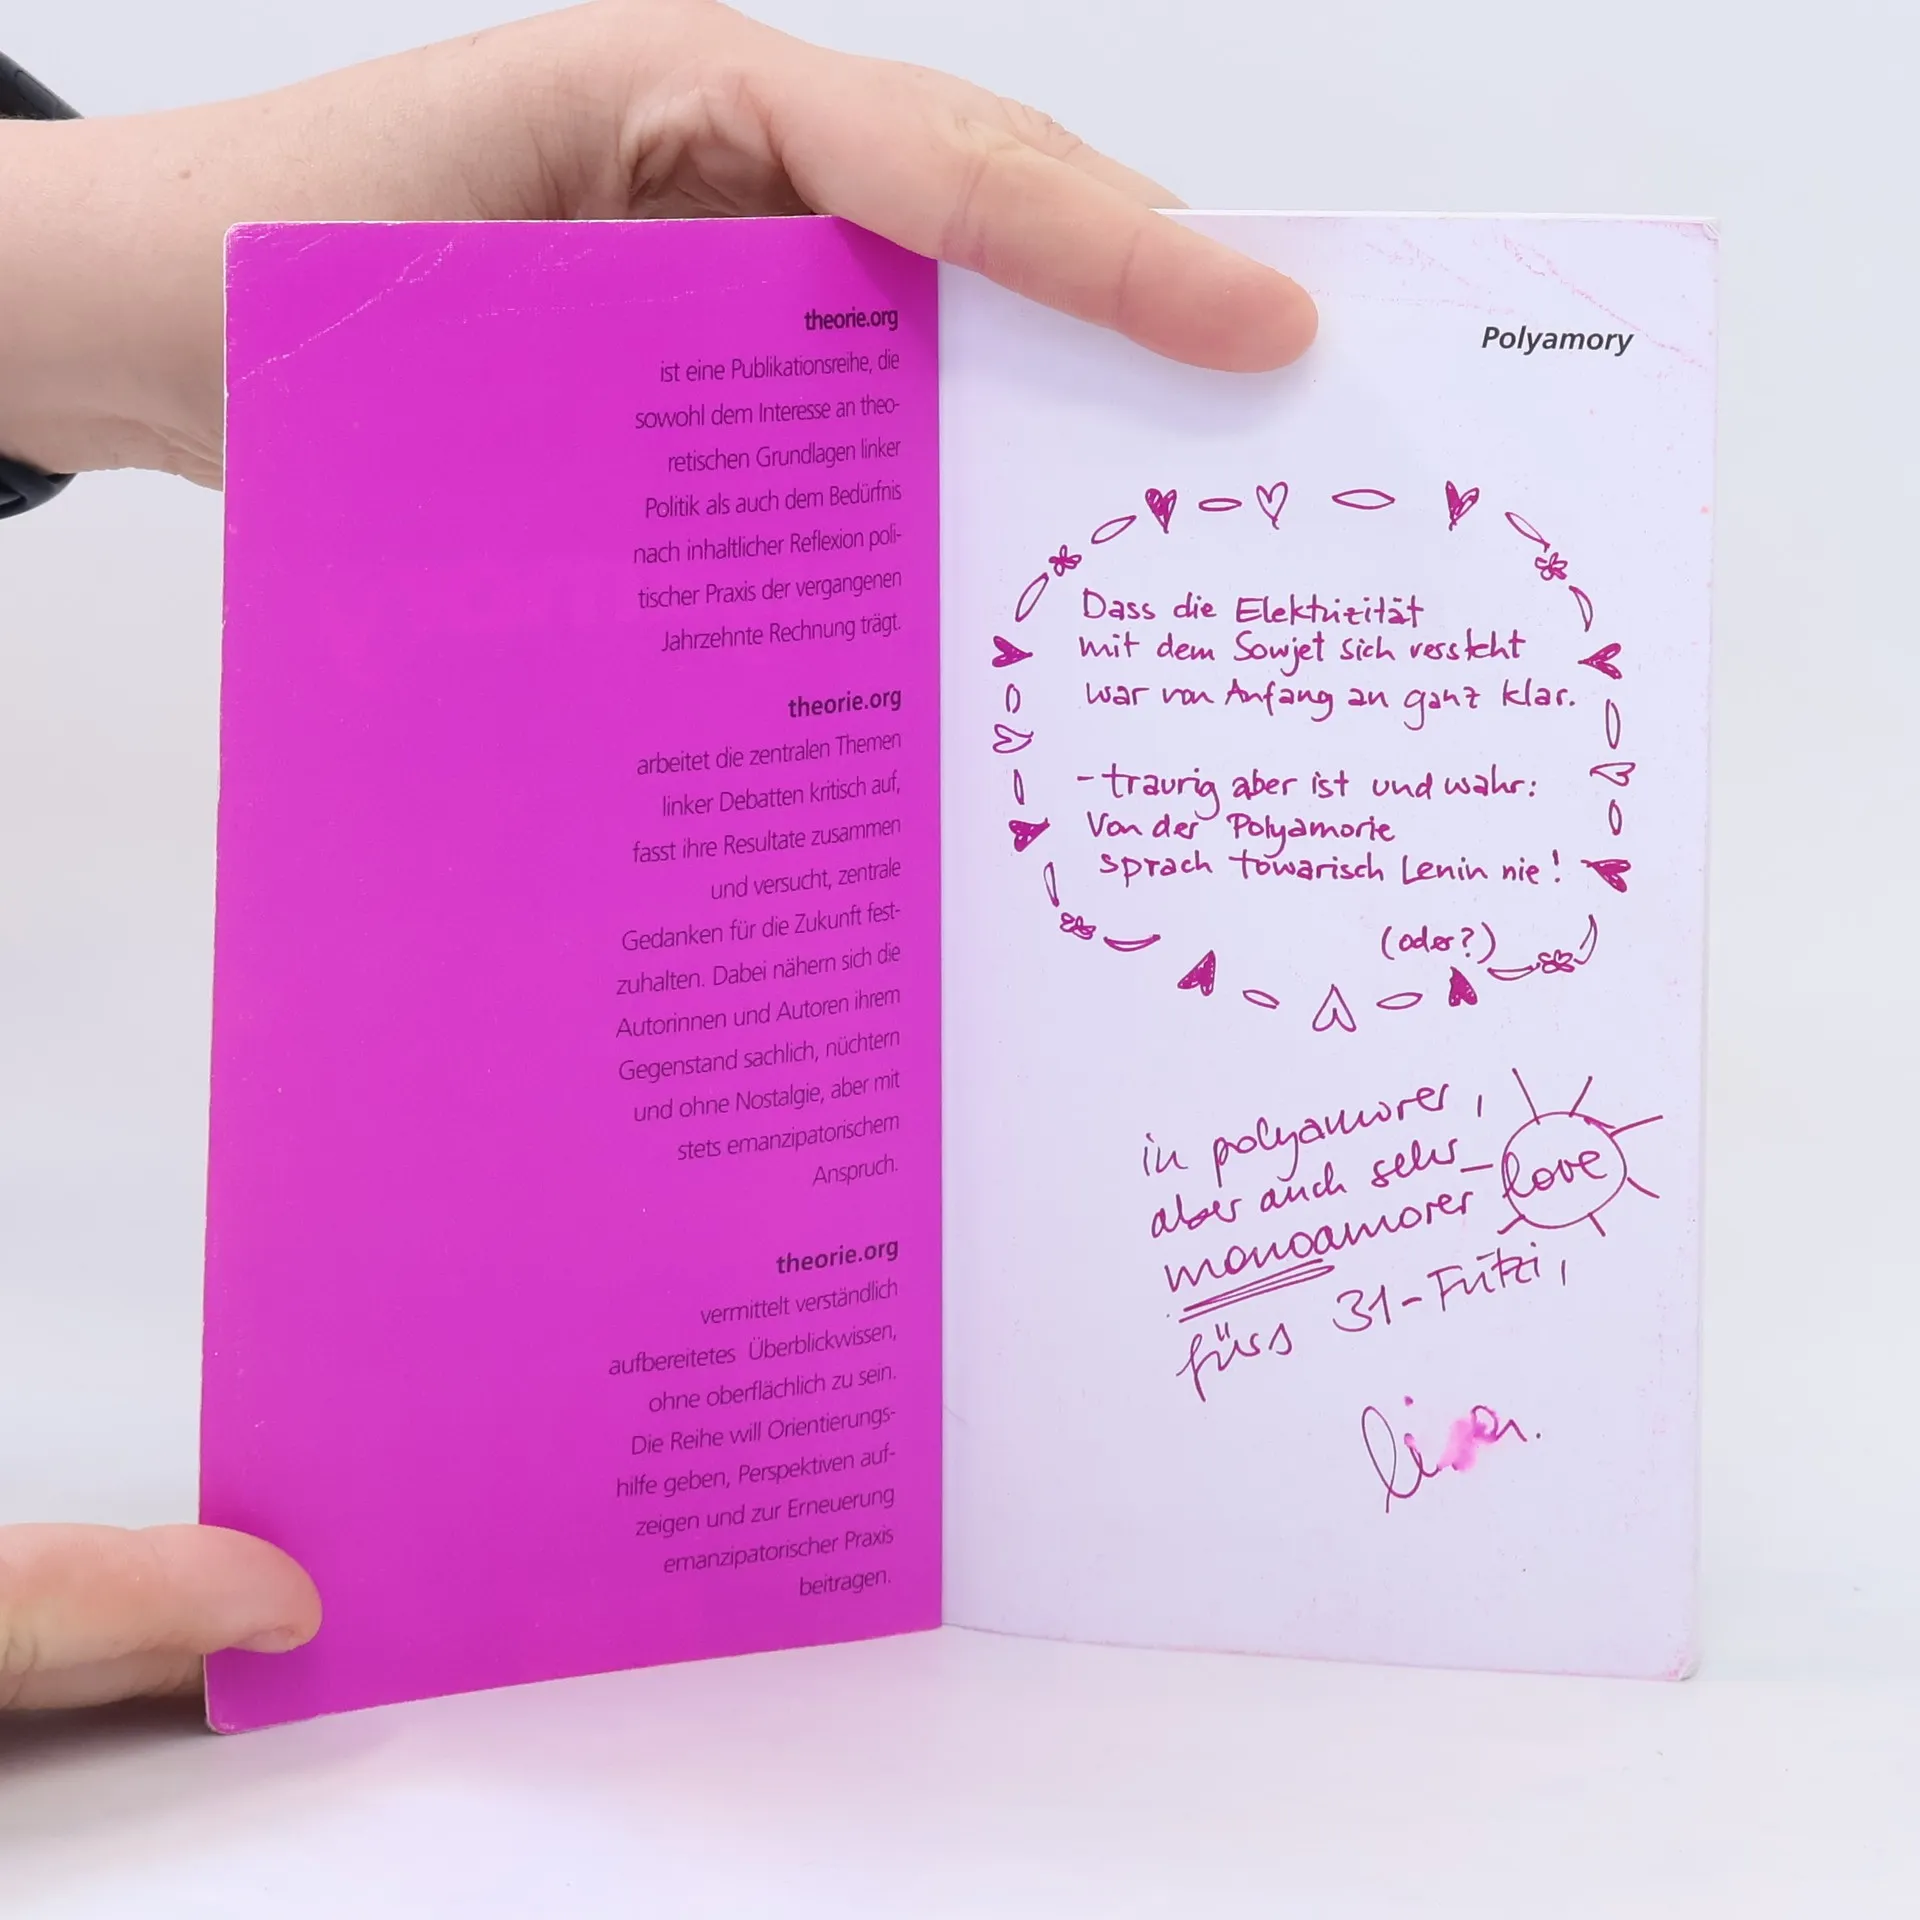 theorie.org
ist eine Publikationsreihe, die
sowohl dem Interesse an theo-
retischen Grundlagen linker
Politik als auch dem Bedürfnis
nach inhaltlicher Reflexion poli-
tischer Praxis der vergangenen
Jahrzehnte Rechnung trägt.
theorie.org
arbeitet die zentralen Themen
linker Debatten kritisch auf,
fasst ihre Resultate zusammen
und versucht, zentrale
Gedanken für die Zukunft fest-
zuhalten. Dabei nähern sich die
Autorinnen und Autoren ihrem
Gegenstand sachlich, nüchtern
und ohne Nostalgie, aber mit
stets emanzipatorischem
Anspruch.
theorie.org
vermittelt verständlich
aufbereitetes Überblickwissen,
ohne oberflächlich zu sein.
Die Reihe will Orientierungs-
hilfe geben, Perspektiven auf-
zeigen und zur Erneuerung
emanzipatorischer Praxis
beitragen.
Polyamory
Dass die Elektrizität
mit dem Sowjet sich versteht
war von Anfang an ganz klar.
- traurig aber ist und wahr:
Von der Polyamorie
sprach towarisch Lenin nie!
(oder?)
in polyamorer,
aber auch sehr
monoamorer love
fürs 31-Fützi,